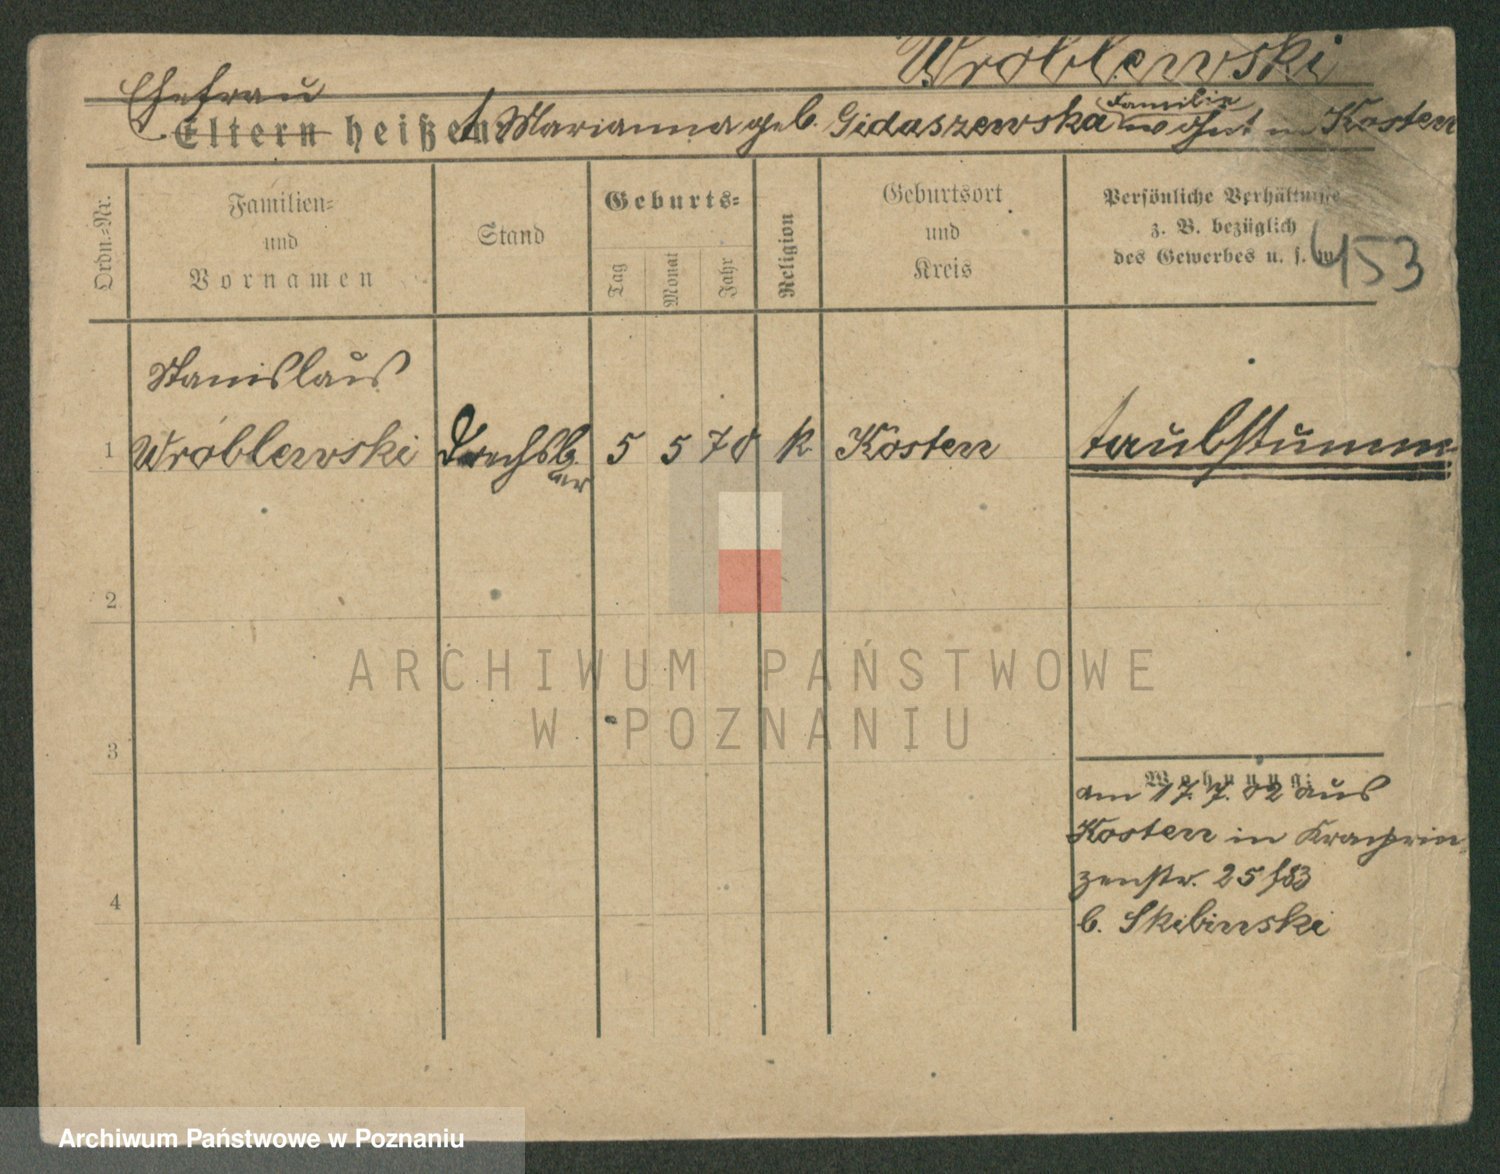 Wróblewski
Ehefrau
Eltern heißen Marianna geb. Gidaszewska Familie wohnt in Kosten
Ordn.-Nr.
Familien-
und
Vornamen
Stand
Geburts-
Tag
Monat
Jahr
Religion
Geburtsort
und
Kreis
Persönliche Verhältnisse
z. B. bezüglich
des Gewerbes u. s. w.
453
Stanislaus
1 Wróblewski Drechsl. 5 5 70 k. Kosten taubstumm
er
2
3
Wohnung:
am 17.7.02 aus
Kosten in Kronprin
zenstr. 25
4
b. Skibinski
ARCHIWUM PAŃSTWOWE
W POZNANIU
Archiwum Państwowe w Poznaniu